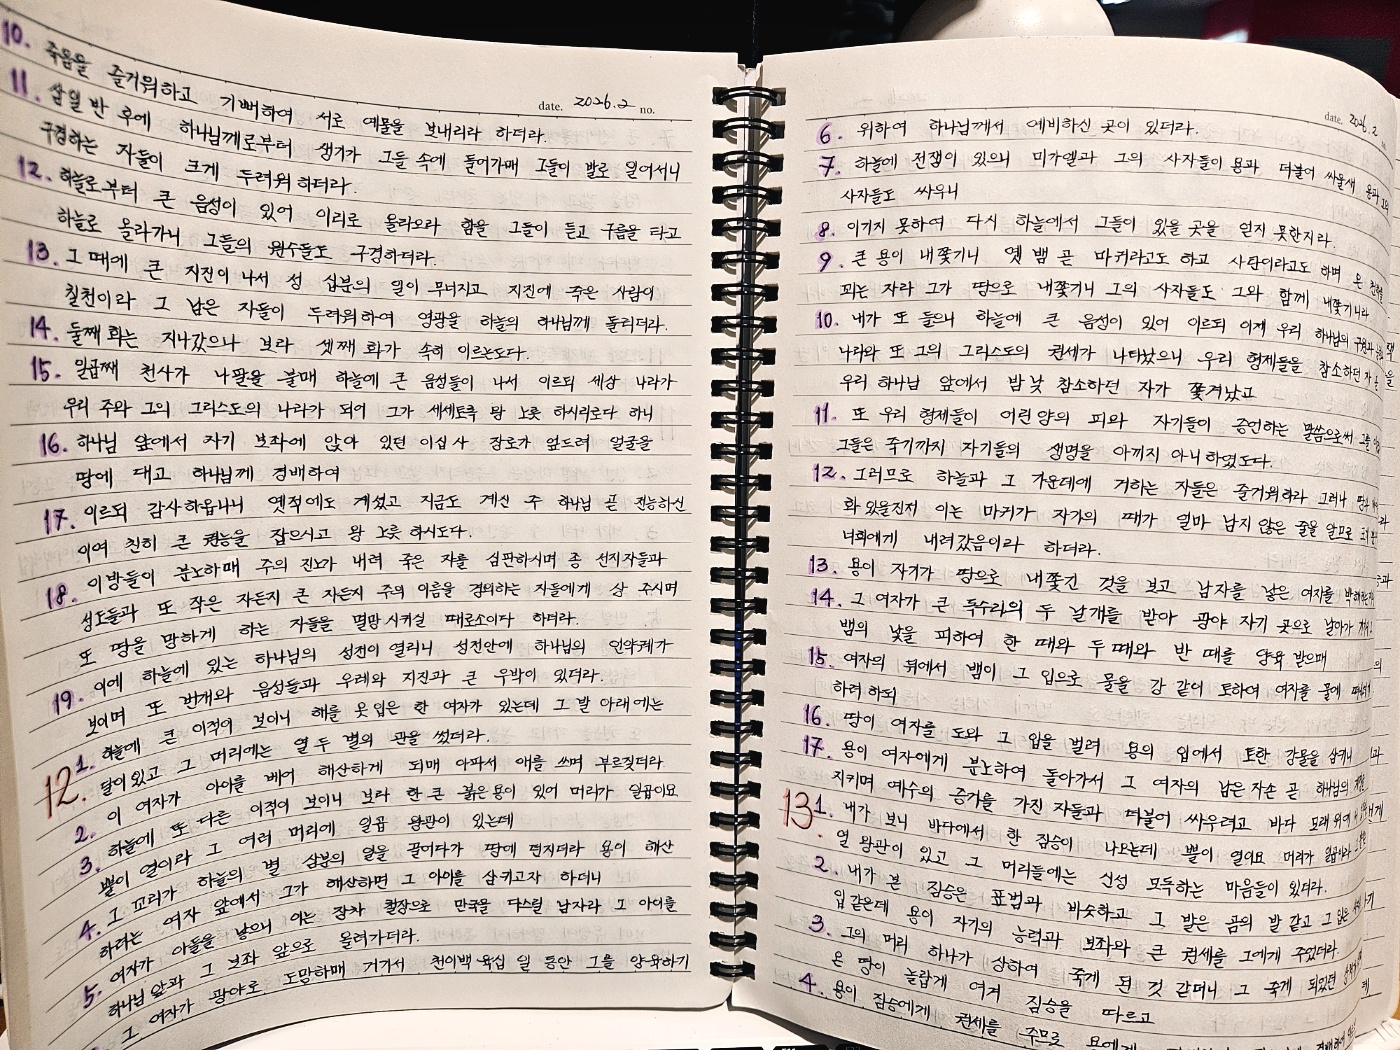 date. 2026.2 no.
10. 죽음을 즐거워하고 기뻐하여 서로 예물을 보내리라 하더라.
11. 삼일 반 후에 하나님께로부터 생기가 그들 속에 들어가매 그들이 발로 일어서니
구경하는 자들이 크게 두려워 하더라.
12. 하늘로부터 큰 음성이 있어 이리로 올라오라 함을 그들이 듣고 구름을 타고
하늘로 올라가니 그들의 원수들도 구경하더라.
13. 그 때에 큰 지진이 나서 성 십분의 일이 무너지고 지진에 죽은 사람이
칠천이라 그 남은 자들이 두려워하여 영광을 하늘의 하나님께 돌리더라.
14. 둘째 화는 지나갔으나 보라 셋째 화가 속히 이르는도다.
15. 일곱째 천사가 나팔을 불매 하늘에 큰 음성들이 나서 이르되 세상 나라가
우리 주와 그의 그리스도의 나라가 되어 그가 세세토록 왕 노릇 하시리로다 하니
16. 하나님 앞에서 자기 보좌에 앉아 있던 이십사 장로가 엎드려 얼굴을
땅에 대고 하나님께 경배하여
17. 이르되 감사하옵나니 옛적에도 계셨고 지금도 계신 주 하나님 곧 전능하신
이여 친히 큰 권능을 잡으시고 왕 노릇 하시도다.
18. 이방들이 분노하매 주의 진노가 내려 죽은 자를 심판하시며 종 선지자들과
성도들과 또 작은 자든지 큰 자든지 주의 이름을 경외하는 자들에게 상 주시며
또 땅을 망하게 하는 자들을 멸망시키실 때로소이다 하더라.
19. 이에 하늘에 있는 하나님의 성전이 열리니 성전안에 하나님의 언약궤가
보이며 또 번개와 음성들과 우레와 지진과 큰 우박이 있더라.
12. 1. 하늘에 큰 이적이 보이니 해를 옷 입은 한 여자가 있는데 그 발 아래에는
달이 있고 그 머리에는 열두 별의 관을 썼더라.
2. 이 여자가 아이를 베어 해산하게 되매 아파서 애를 쓰며 부르짖더라
3. 하늘에 또 다른 이적이 보이니 보라 한 큰 붉은 용이 있어 머리가 일곱이요
뿔이 열이라 그 여러 머리에 일곱 왕관이 있는데
4. 그 꼬리가 하늘의 별 삼분의 일을 끌어다가 땅에 던지더라 용이 해산
하려는 여자 앞에서 그가 해산하면 그 아이를 삼키고자 하더니
5. 여자가 아들을 낳으니 이는 장차 철장으로 만국을 다스릴 남자라 그 아이를
하나님 앞과 그 보좌 앞으로 올려가더라.
그 여자가 광야로 도망하매 거기서 천이백 육십 일 동안 그를 양육하기
date. 2026.2
6. 위하여 하나님께서 예비하신 곳이 있더라.
7. 하늘에 전쟁이 있으니 미가엘과 그의 사자들이 용과 더불어 싸울새 용과 그의
사자들도 싸우나
8. 이기지 못하여 다시 하늘에서 그들이 있을 곳을 얻지 못한지라.
9. 큰 용이 내쫓기니 옛 뱀 곧 마귀라고도 하고 사탄이라고도 하며 온 천하를
꾀는 자라 그가 땅으로 내쫓기니 그의 사자들도 그와 함께 내쫓기니라
10. 내가 또 들으니 하늘에 큰 음성이 있어 이르되 이제 우리 하나님의 구원과
나라와 또 그의 그리스도의 권세가 나타났으니 우리 형제들을 참소하던 자
우리 하나님 앞에서 밤낮 참소하던 자가 쫓겨났고
11. 또 우리 형제들이 어린양의 피와 자기들이 증언하는 말씀으로써
그들은 죽기까지 자기들의 생명을 아끼지 아니하였도다.
12. 그러므로 하늘과 그 가운데에 거하는 자들은 즐거워하라 그러나 땅과
화 있을진저 이는 마귀가 자기의 때가 얼마 남지않은 줄을 알므로
너희에게 내려갔음이라 하더라.
13. 용이 자기가 땅으로 내쫓긴 것을 보고 남자를 낳은 여자를
14. 그 여자가 큰 독수리의 두 날개를 받아 광야 자기 곳으로 날아가
뱀의 낯을 피하여 한 때와 두 때와 반 때를 양육 받으매
15. 여자의 뒤에서 뱀이 그 입으로 물을 강 같이 토하여 여자를 물에
하려 하되
16. 땅이 여자를 도와 그 입을 벌려 용의 입에서 토한 강물을 삼키니
17. 용이 여자에게 분노하여 돌아가서 그 여자의 남은 자손 곧 하나님의
지키며 예수의 증거를 가진 자들과 더불어 싸우려고 바다 모래 위에
13. 1. 내가 보니 바다에서 한 짐승이 나오는데 뿔이 열이요 머리가 일곱이라
열 왕관이 있고 그 머리들에는 신성 모독하는 마음들이 있더라.
2. 내가 본 짐승은 표범과 비슷하고 그 발은 곰의 발 같고 그 입은
입 같은데 용이 자기의 능력과 보좌와 큰 권세를 그에게 주었더라
3. 그의 머리 하나가 상하여 죽게 된 것 같더니 그 죽게 되었던
온 땅이 놀랍게 여겨 짐승을 따르고
4. 용이 짐승에게 권세를 주므로 용에게